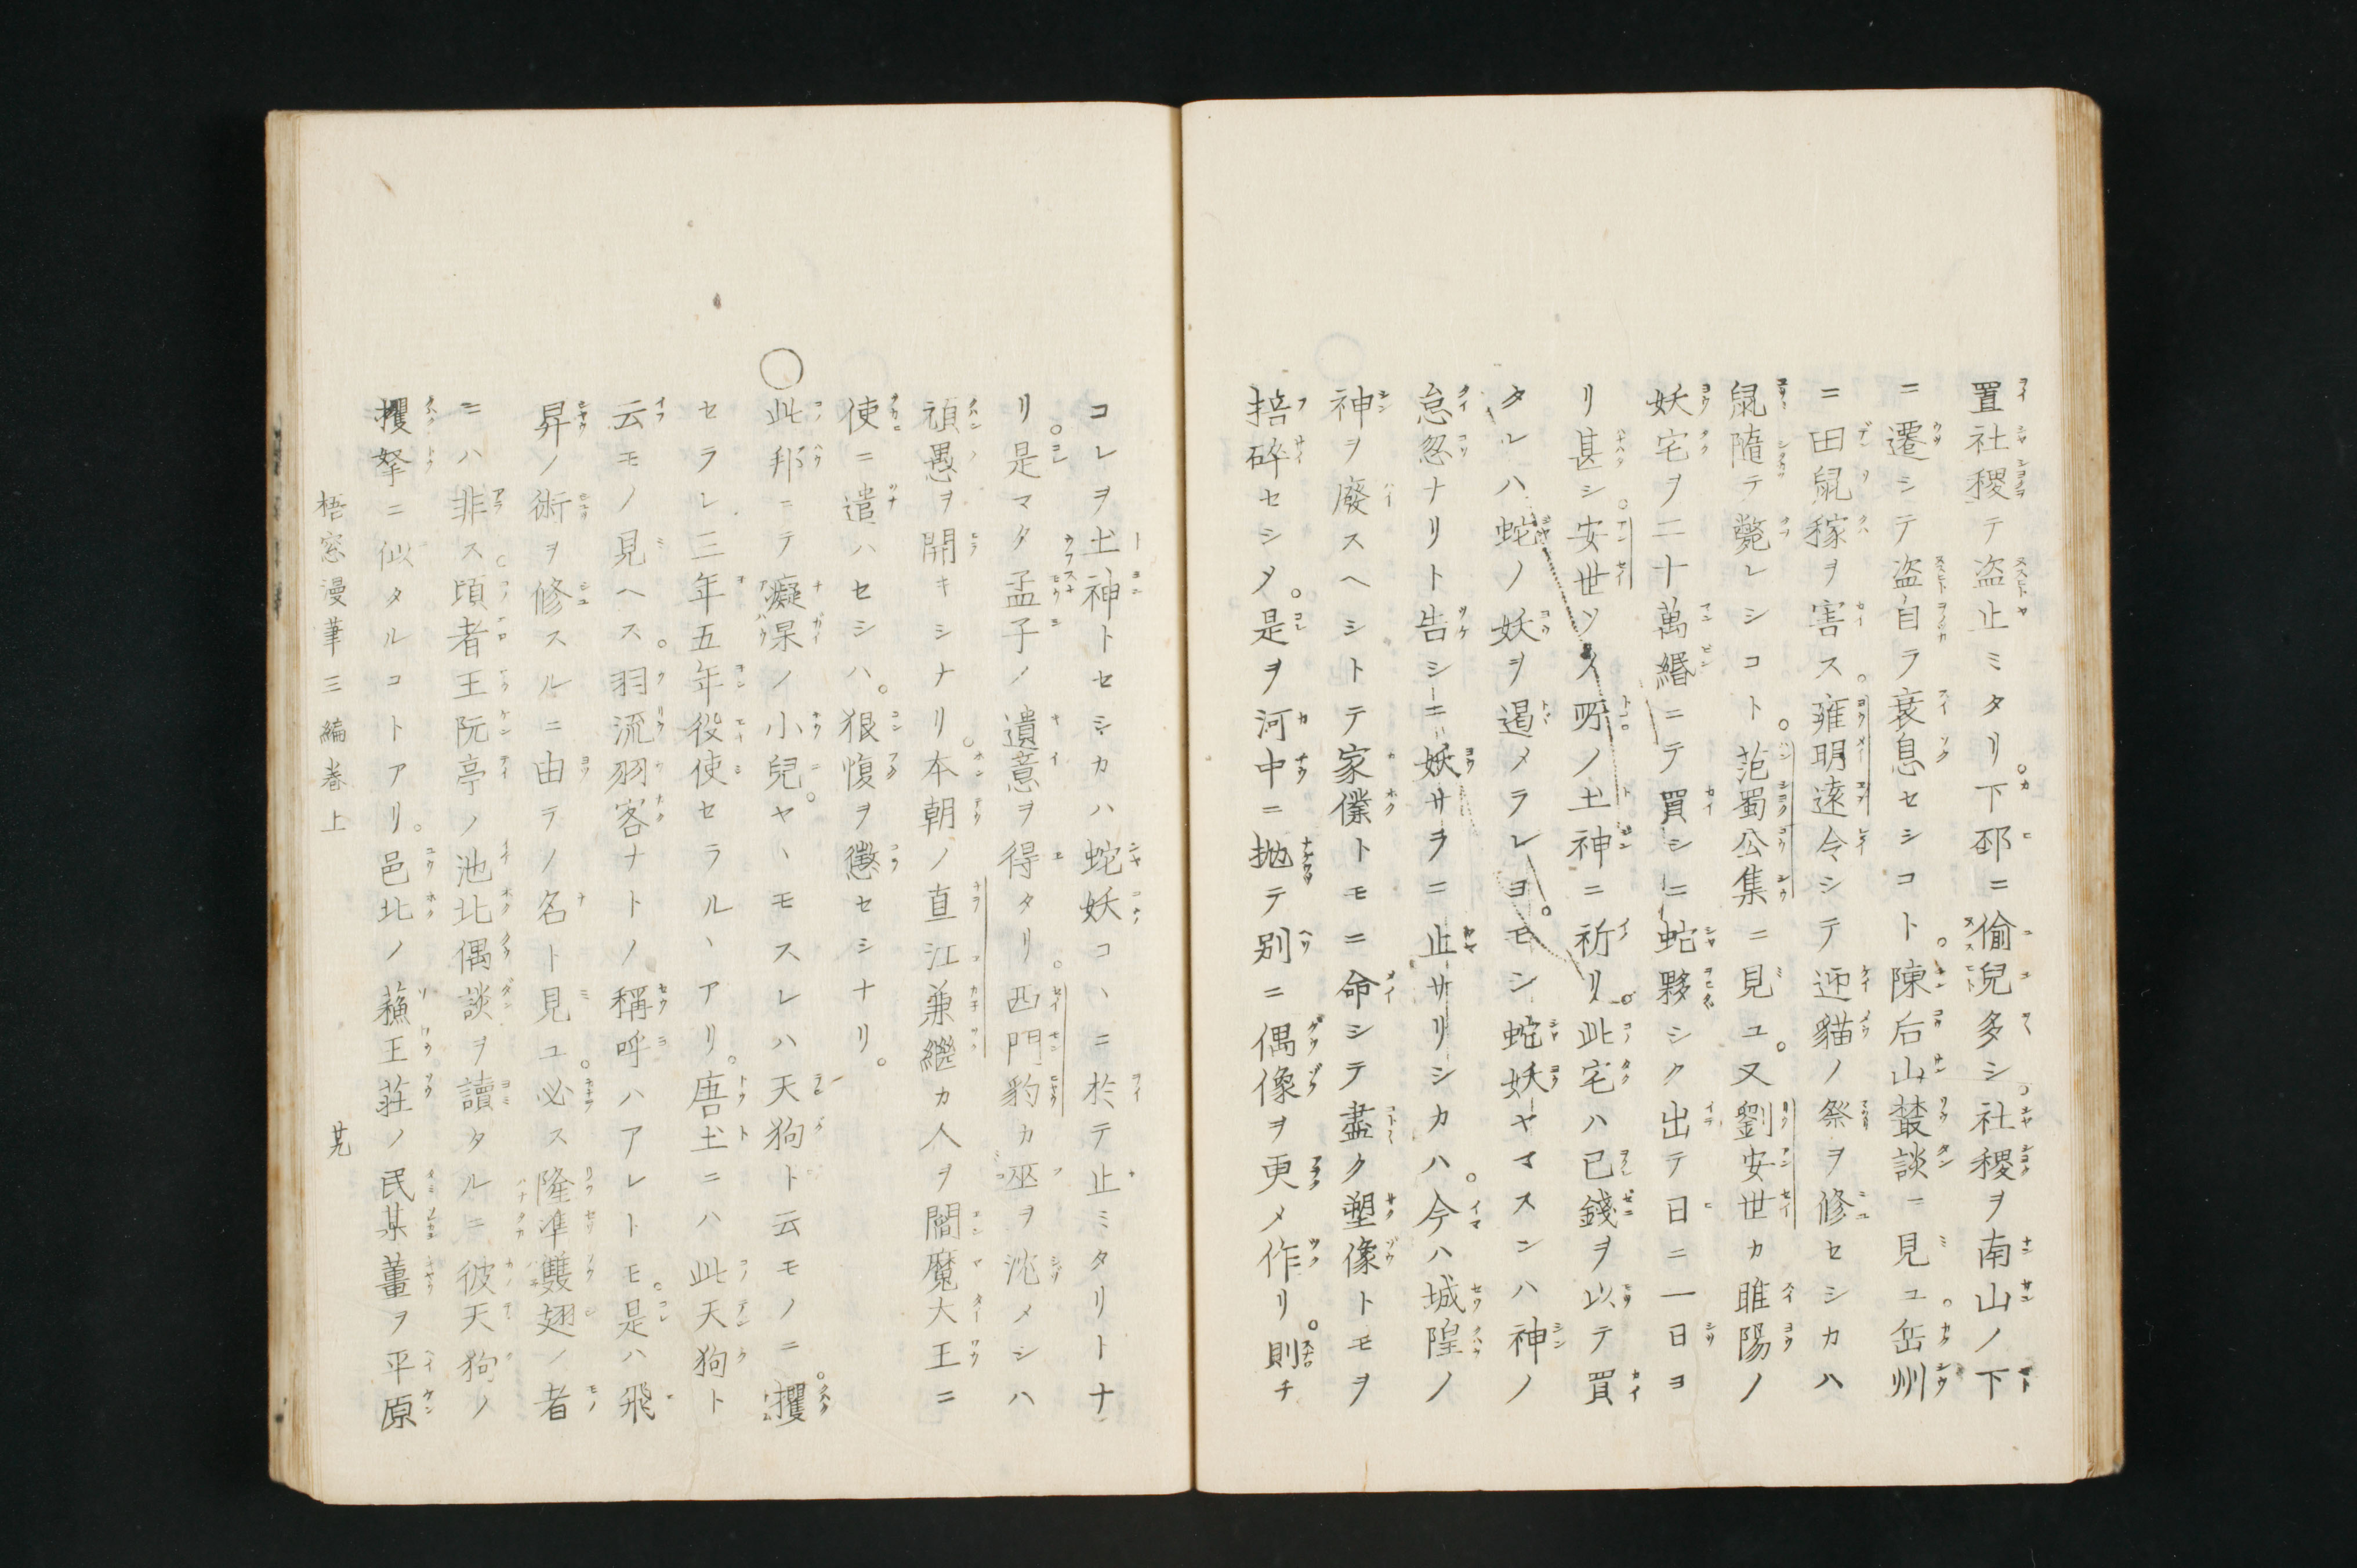 置社稷テ盗止ミタリ。下邳ニ偷兒多シ。社稷ヲ南山ノ下
ニ遷シテ盗自ラ衰息セシコト。陳后山叢談ニ見ユ。岳州
ニ田鼠稼ヲ害ス。雍明遠令シテ迎貓ノ祭ヲ修セシカハ
鼠隨テ斃レシコト。范蜀公集ニ見ユ。又劉安世カ睢陽ノ
妖宅ヲ二十萬緡ニテ買シニ蛇夥シク出テ日ニ一日ヨ
リ甚シ。安世ソノ所ノ土神ニ祈リ。此宅ハ己錢ヲ以テ買
タルハ蛇ノ妖ヲ遏メラレヨ。モシ蛇妖ヤマスンハ神ノ
怠忽ナリト告シニ妖サヲニ止サリシカハ。今ハ城隍ノ
神ヲ廢スヘシトテ家僕トモニ命シテ盡ク塑像トモヲ
掊碎セシメ。是ヲ河中ニ拋テ別ニ偶像ヲ更メ作リ。則チ
コレヲ土神トセシカハ蛇妖コヽニ於テ止ミタリトナ
リ。是マタ孟子ノ遺意ヲ得タリ。西門豹カ巫ヲ沈メシハ
頑愚ヲ開キシナリ。本朝ノ直江兼繼カ人ヲ閻魔大王ニ
使ニ遣ハセシハ。狠愎ヲ懲セシナリ。
○此邦ニテ癡呆ノ小兒。ヤヽモスレハ天狗ト云モノニ。攫
セラレ三年五年役使セラルヽアリ。唐土ニハ此天狗ト
云モノ見ヘス。羽流羽客ナトノ稱呼ハアレトモ。是ハ飛
昇ノ術ヲ修スルニ由テノ名ト見ユ。必ス隆凖雙翅ノ者
ニハ非ス。頃者王阮亭ノ池北偶談ヲ讀タルニ彼天狗ノ
攫拏ニ似タルコトアリ。邑北ノ蘓王莊ノ民某董ヲ平原
梧窓漫筆三編卷上 廿九